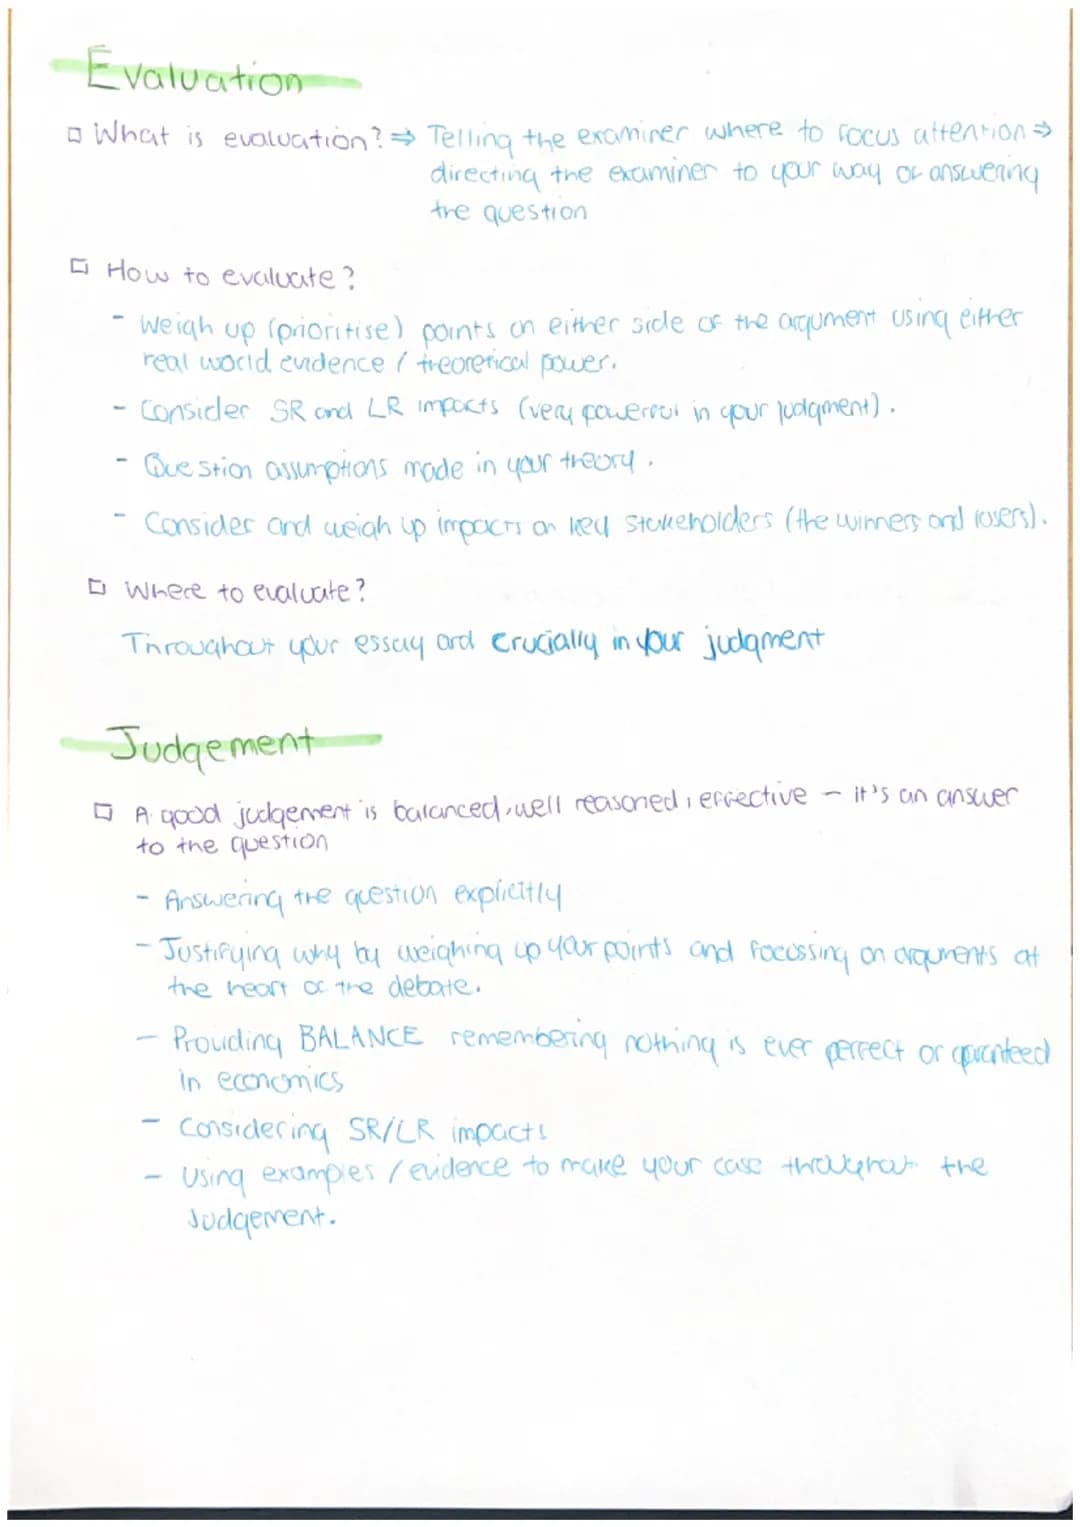 Evaluation
□ What is evaluation? ⇒ Telling the examiner where to focus attention ⇒
directing the examiner to your way of answering
the question
□ How to evaluate?
- Weigh up (prioritise) points on either side of the argument using either
real world evidence / theoretical power.
- Consider SR and LR impacts (very powerful in your judgment).
- Question assumptions made in your theory.
- Consider and weigh up impacts on key stakeholders (the winners and losers).
□ Where to evaluate?
Throughout your essay and crucially in your judgment
Judgement
□ A good judgement is balanced, well reasoned, effective - it's an answer
to the question
- Answering the question explicitly
- Justifying why by weighing up your points and focussing on arguments at
the heart of the debate.
- Providing BALANCE remembering nothing is ever perfect or guaranteed
in economics
- Considering SR/LR impacts
- Using examples / evidence to make your case throughout the
Judgement.